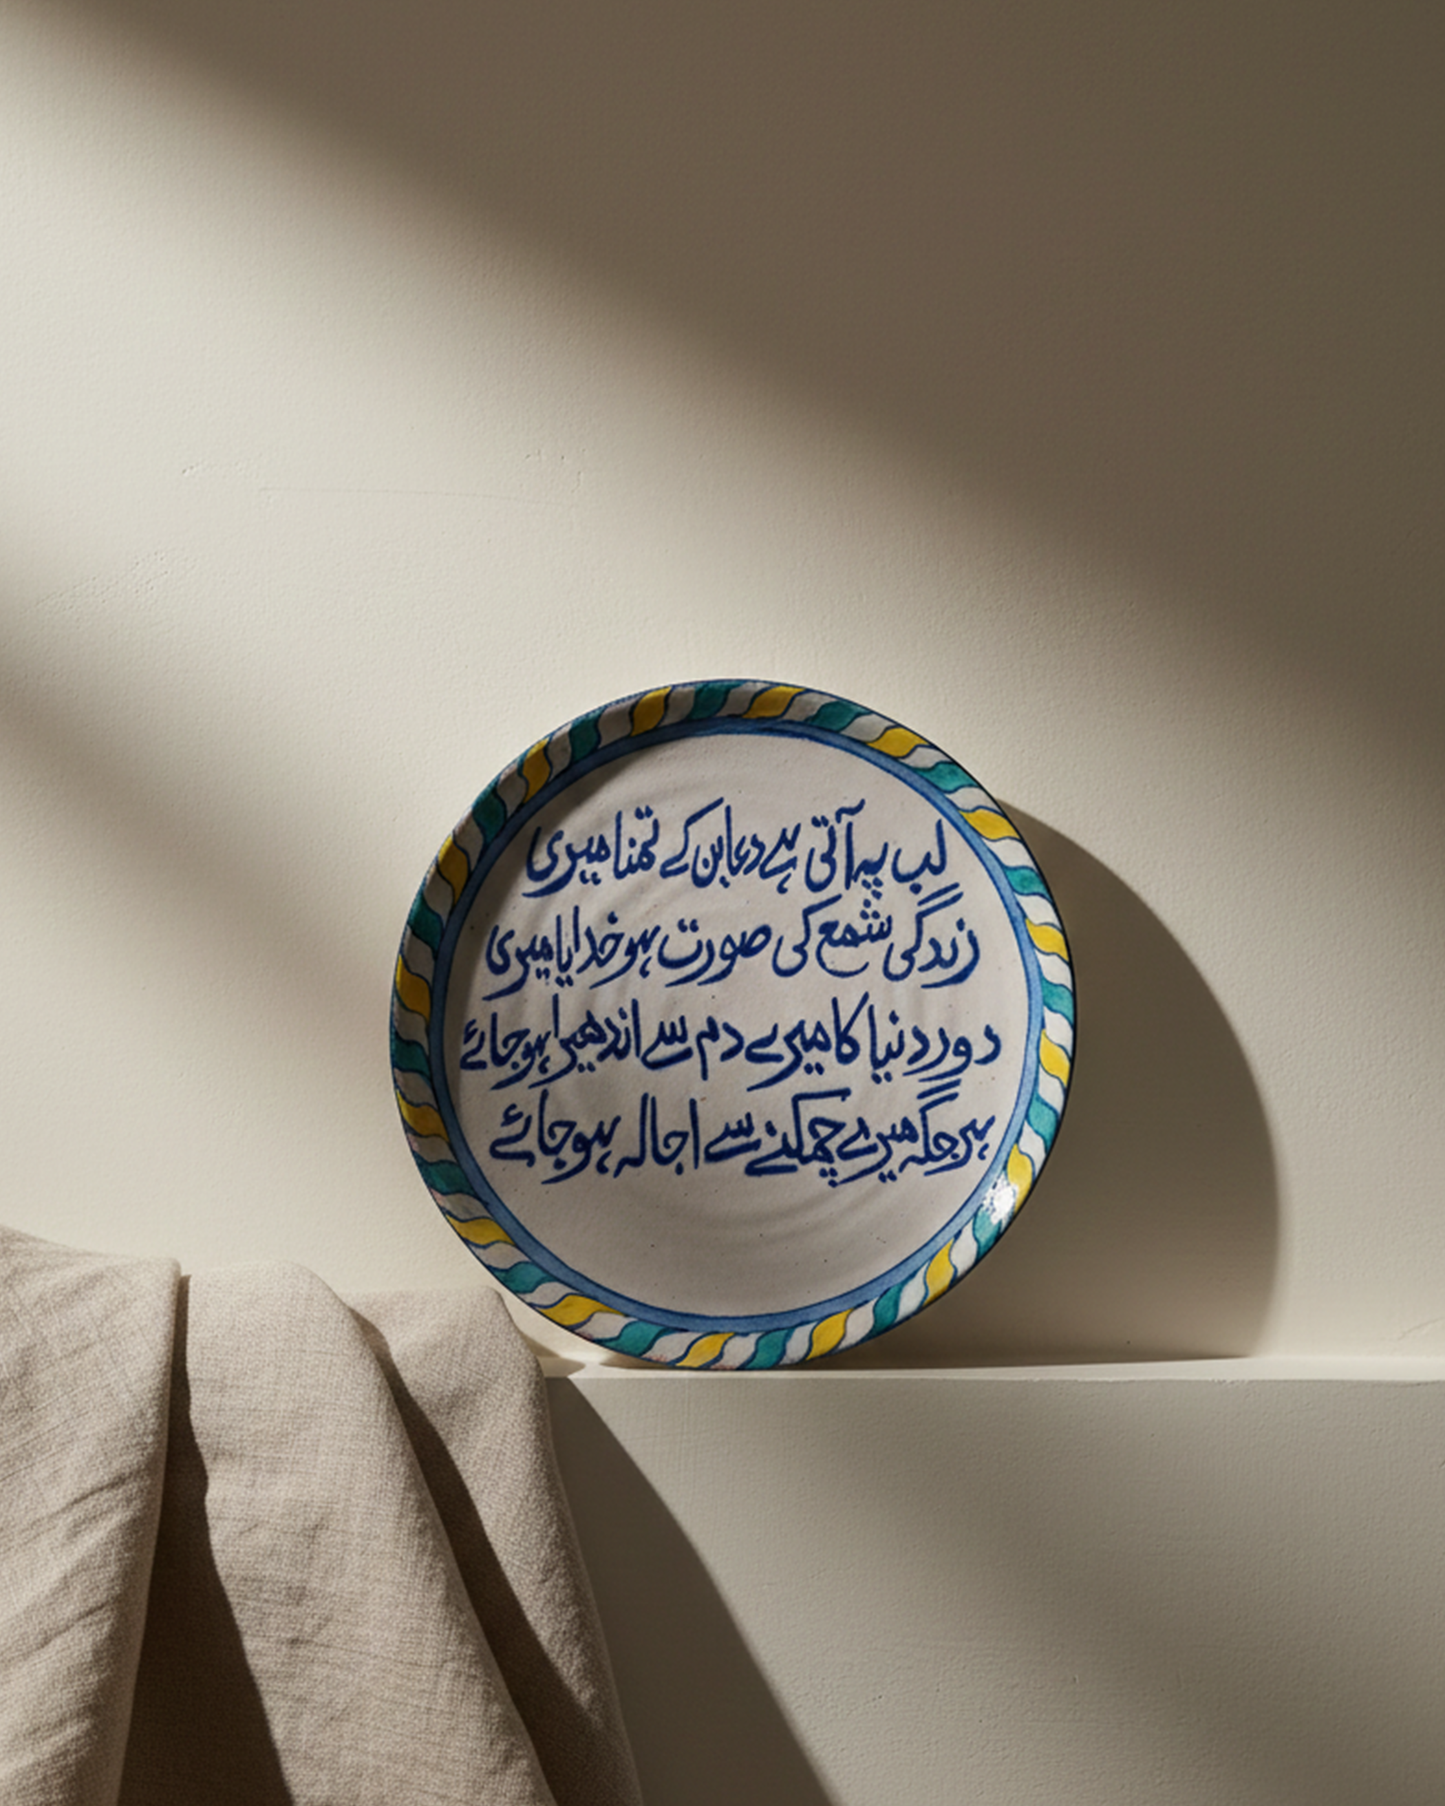 لب پہ آتی ہے دعا بن کے تمنا میری
زندگی شمع کی صورت ہو خدایا میری
دور دنیا کا میرے دم سے اندھیرا ہو جائے
ہر جگہ میرے چمکنے سے اجالہ ہو جائے